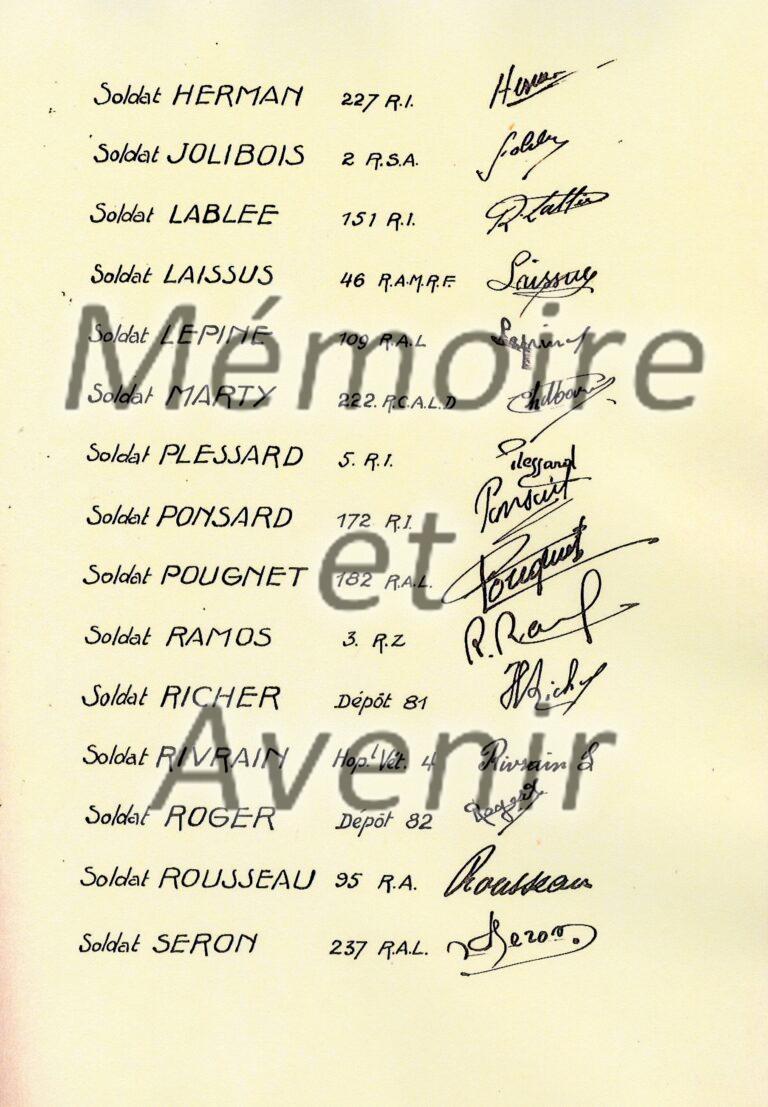 Soldat HERMAN 227 R.I. Herman
Soldat JOLIBOIS 2 R.S.A.
Soldat LABLEE 151 R.I.
Soldat LAISSUS 46 R.A.M.R.F. Laissus
Soldat LEPINE 109 R.A.L Lepine
Mémoire
Soldat MARTY 222. R.C.A.L.D
Soldat PLESSARD 5. R.I. Plessard
Soldat PONSARD 172 R.I. Ponsard
et
Soldat POUGNET 182 R.A.L. Pougnet
Soldat RAMOS 3. R.Z R. Ramos
Soldat RICHER Dépôt 81 H Richer
Soldat RIVRAIN Hop.l Vét. 4 Rivrain L
Avenir
Soldat ROGER Dépôt 82 Roger
Soldat ROUSSEAU 95 R.A. Rousseau
Soldat SERON 237 R.A.L. Seron